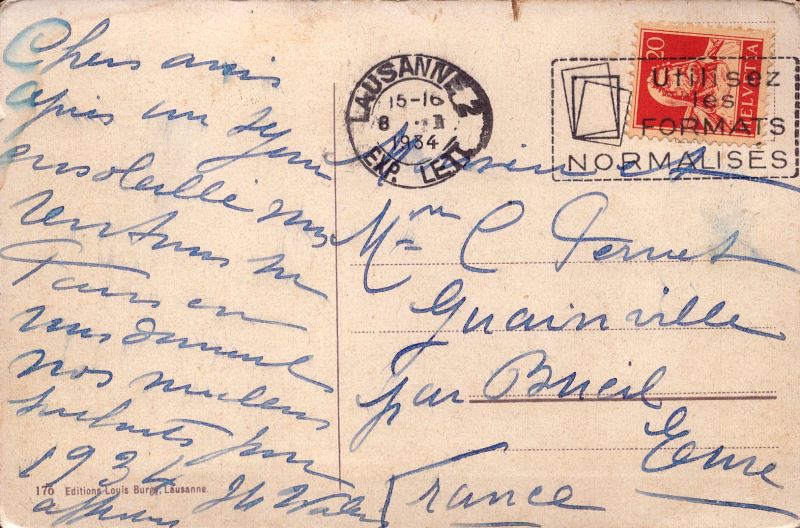 Chers amis
après un séjour
ensoleillé nous
rentrons sur
Paris en
vous donnant
nos meilleurs
souhaits pour
1934
176 Editions Louis Burgy, Lausanne.
LAUSANNE 2
15-16
8
1934
EXP. LETT.
20
HELVETIA
Utilisez
les
FORMATS
NORMALISÉS
Monsieur et
Mme C
Guainville
par Bueil
Eure
France